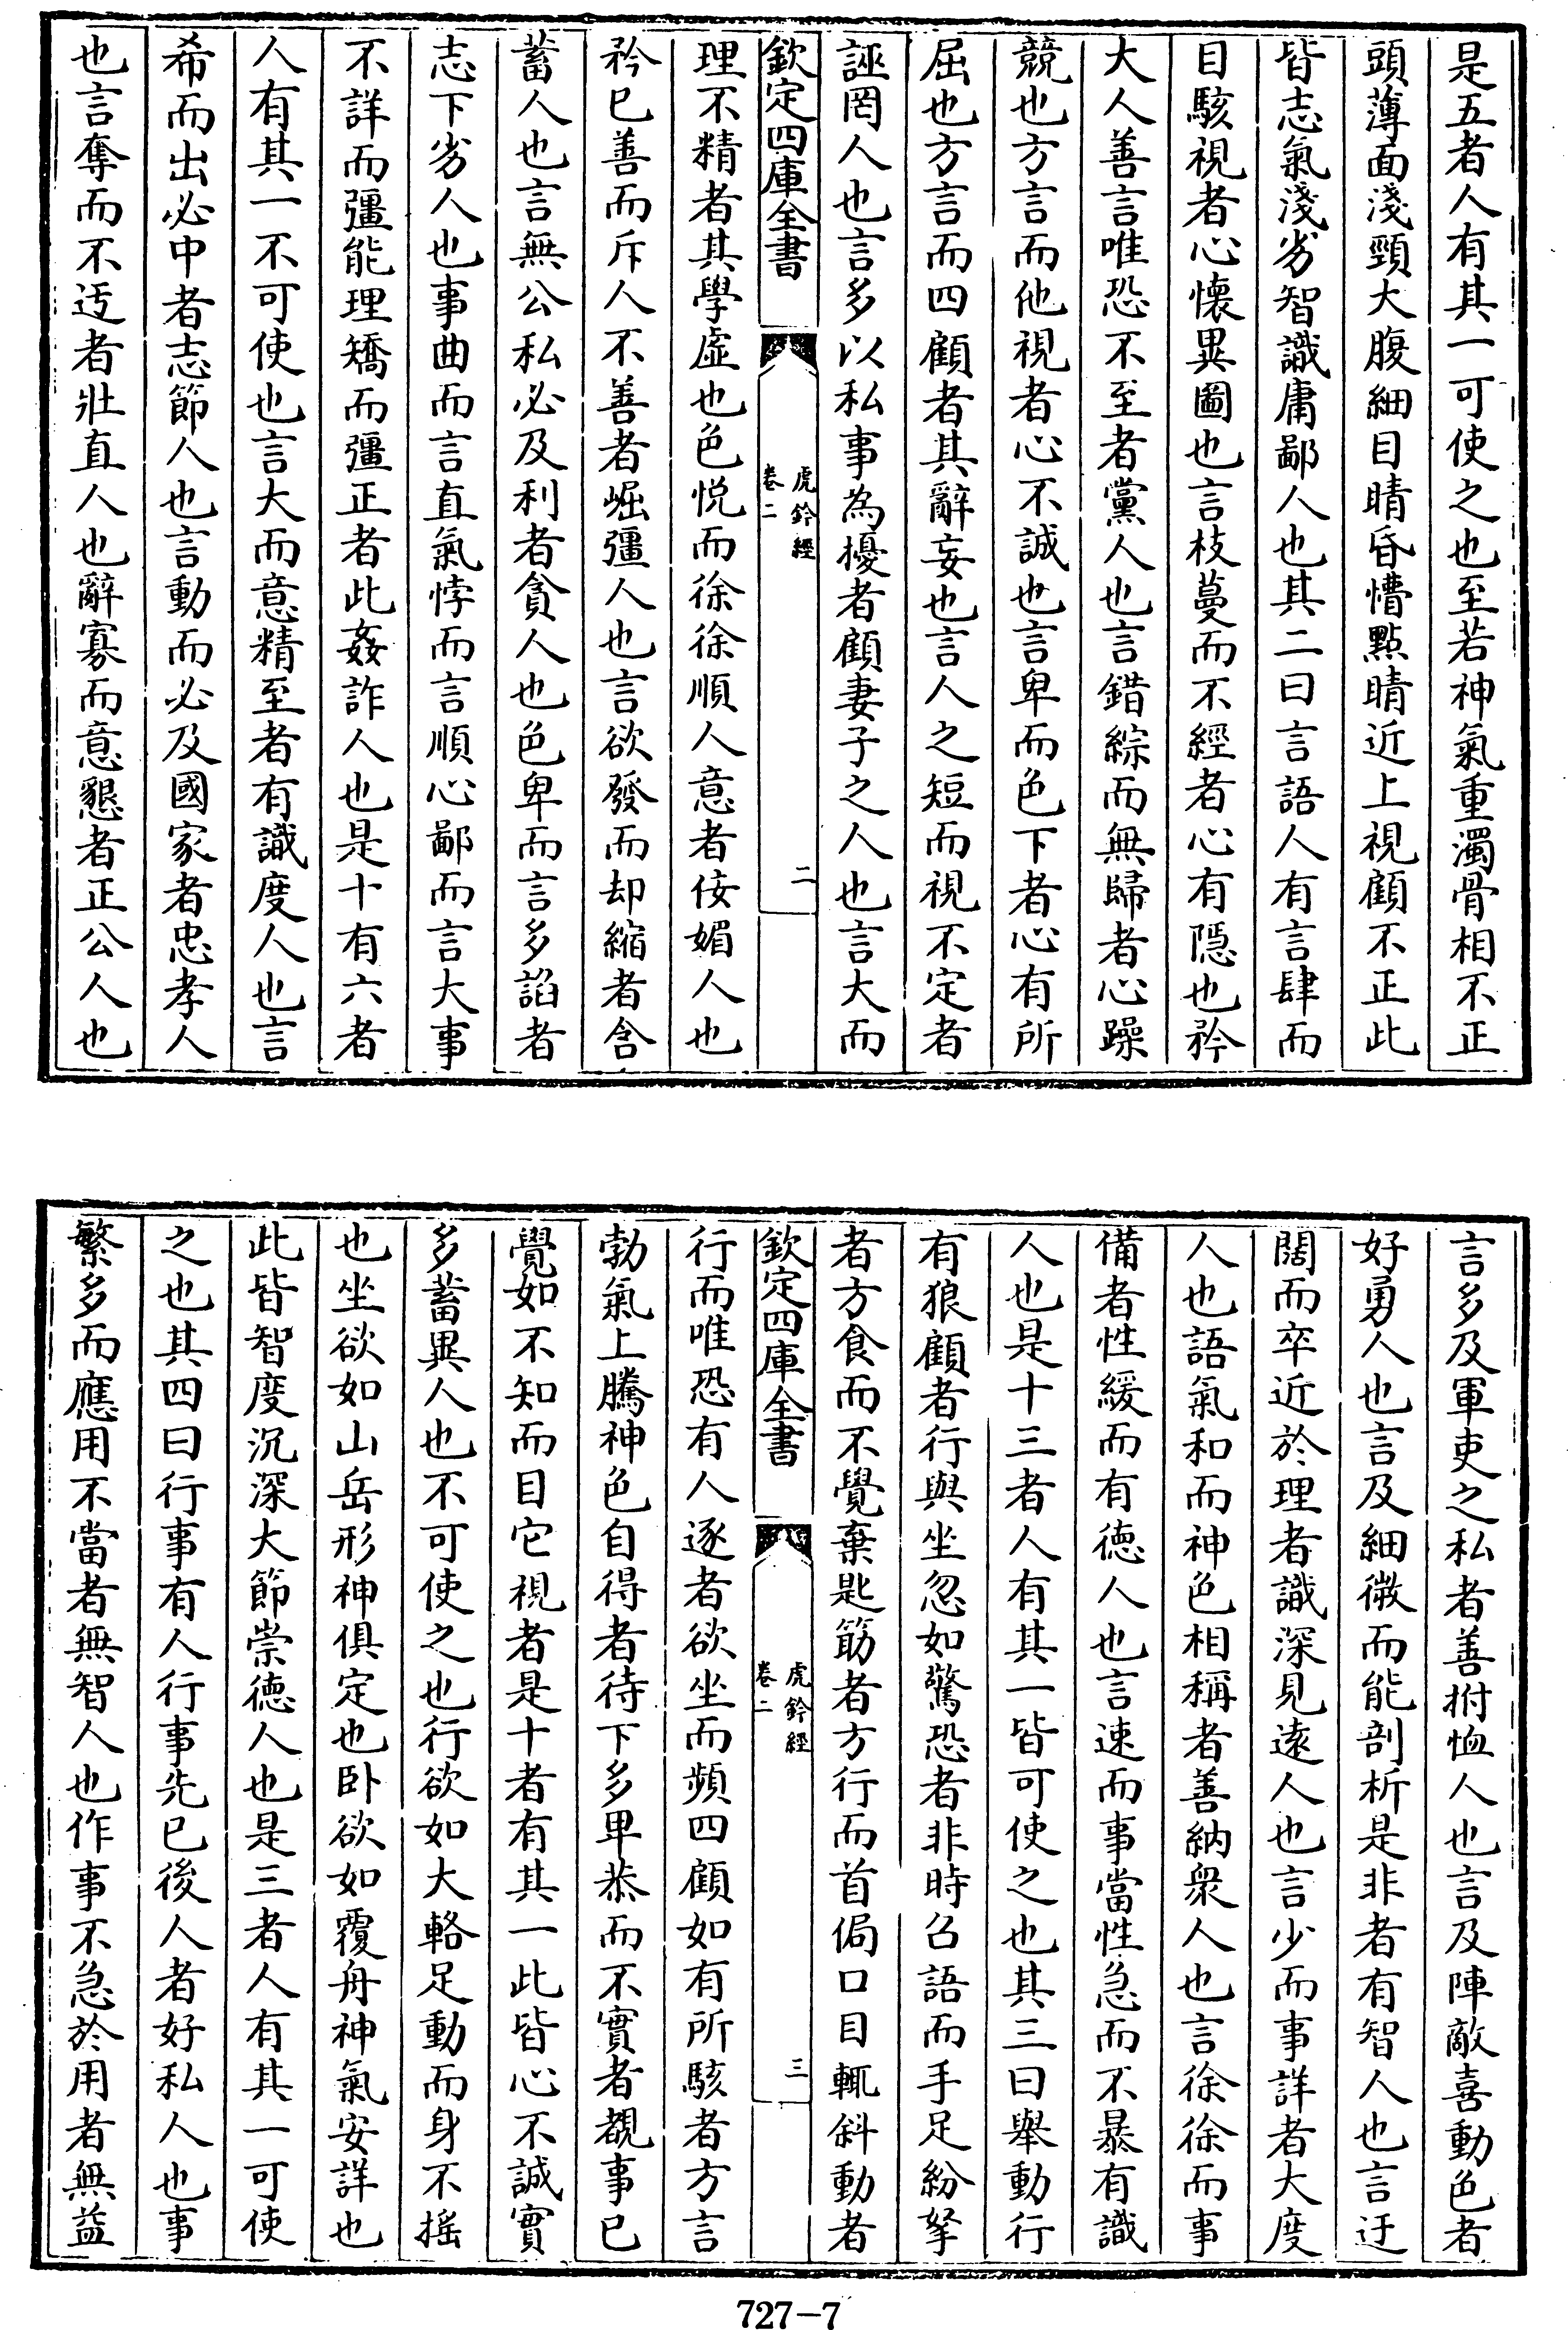 是五者人有其一可使之也至若神氣重濁骨相不正
頭薄面淺頸大腹細目睛昏懵點睛近上視顧不正此
皆志氣淺劣智識庸鄙人也其二曰言語人有言肆而
目駭視者心懷異圖也言枝蔓而不經者心有隱也矜
大人善言唯恐不至者黨人也言錯綜而無歸者心躁
競也方言而他視者心不誠也言卑而色下者心有所
屈也方言而四顧者其辭妄也言人之短而視不定者
誣罔人也言多以私事為擾者顧妻子之人也言大而
欽定四庫全書
虎鈐經
卷二
二
理不精者其學虛也色悅而徐徐順人意者佞媚人也
矜已善而斥人不善者崛彊人也言欲發而却縮者含
蓄人也言無公私必及利者貪人也色卑而言多諂者
志下劣人也事曲而言直氣悖而言順心鄙而言大事
不詳而彊能理矯而彊正者此姦詐人也是十有六者
人有其一不可使也言大而意精至者有識度人也言
希而出必中者志節人也言動而必及國家者忠孝人
也言奪而不迃者壯直人也辭寡而意懇者正公人也
言多及軍吏之私者善拊恤人也言及陣敵喜動色者
好勇人也言及細微而能剖析是非者有智人也言迂
闊而卒近於理者識深見遠人也言少而事詳者大度
人也語氣和而神色相稱者善納衆人也言徐徐而事
備者性緩而有德人也言速而事當性急而不暴有識
人也是十三者人有其一皆可使之也其三曰舉動行
有狼顧者行與坐忽如驚恐者非時召語而手足紛拏
者方食而不覺棄匙筯者方行而首偏口目輒斜動者
欽定四庫全書
虎鈐經
卷二
三
行而唯恐有人逐者欲坐而頻四顧如有所駭者方言
勃氣上騰神色自得者待下多卑恭而不實者覩事已
覺如不知而目它視者是十者有其一此皆心不誠實
多蓄異人也不可使之也行欲如大輅足動而身不搖
也坐欲如山岳形神俱定也卧欲如覆舟神氣安詳也
此皆智度沉深大節崇德人也是三者人有其一可使
之也其四曰行事有人行事先已後人者好私人也事
繁多而應用不當者無智人也作事不急於用者無益
727-7